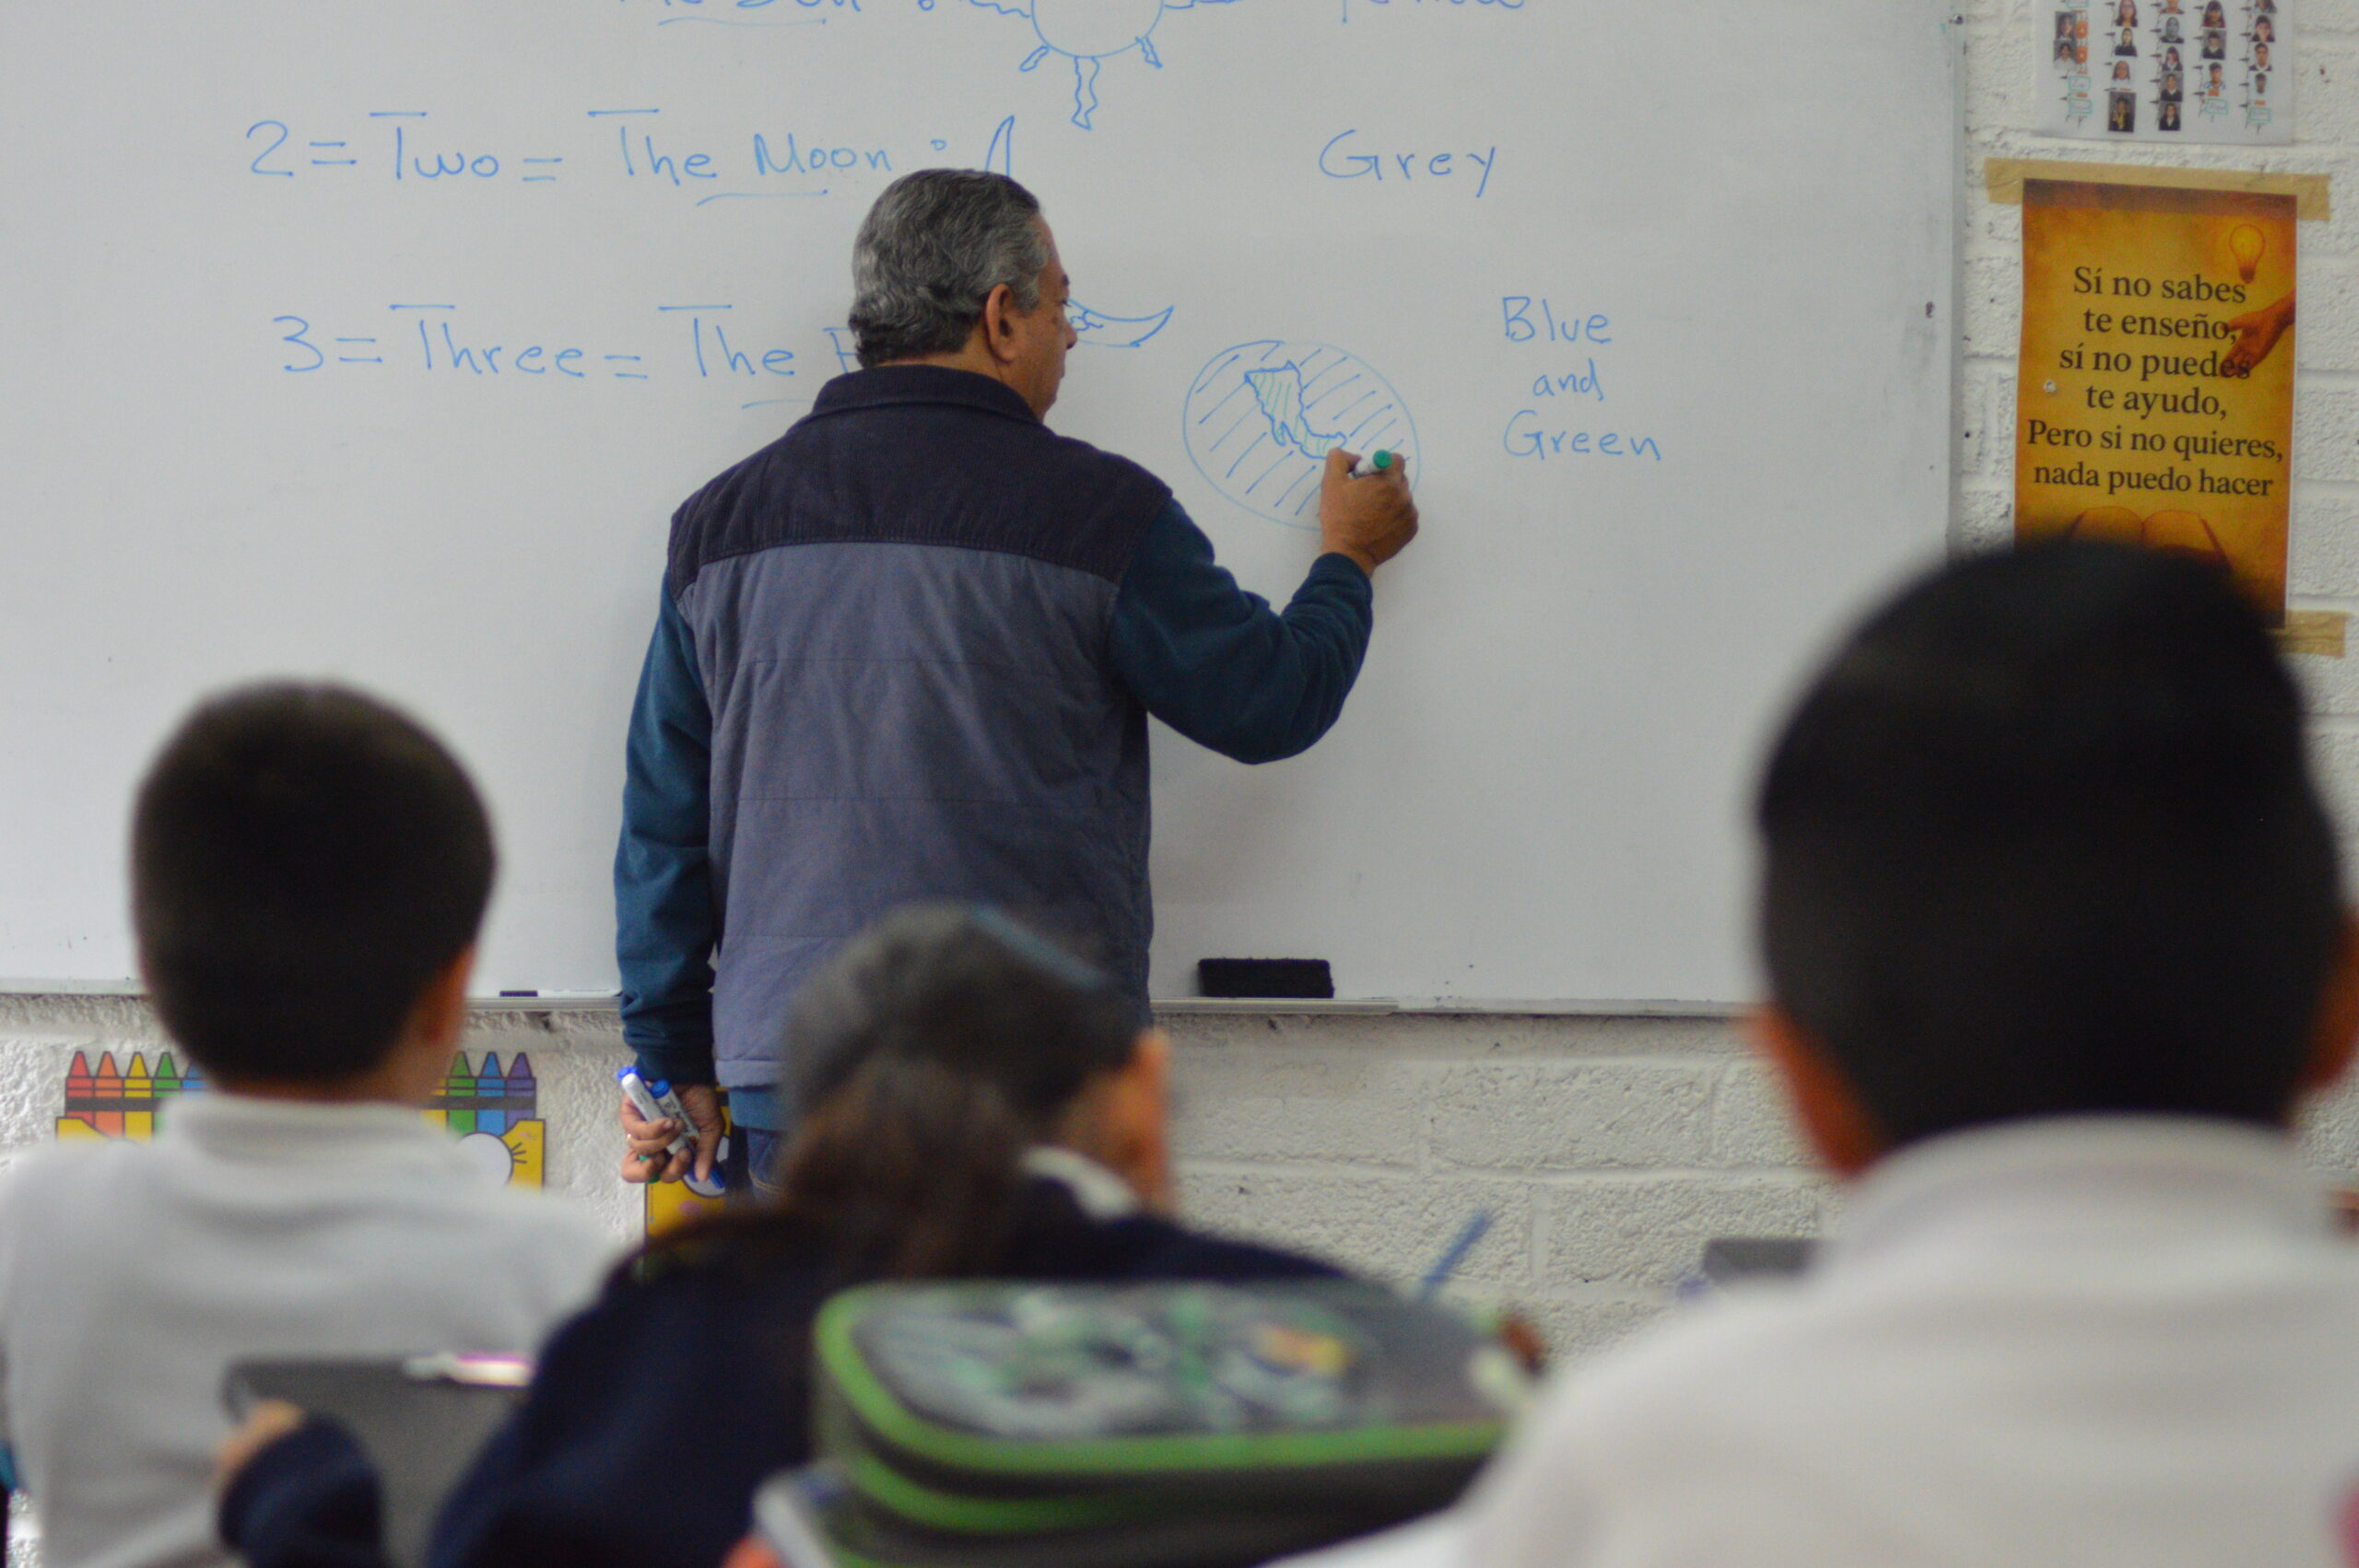 2 = Two = The Moon :
Grey
3 = Three = The
Blue
and
Green
Sí no sabes
te enseño,
sí no puedes
te ayudo,
Pero si no quieres,
nada puedo hacer